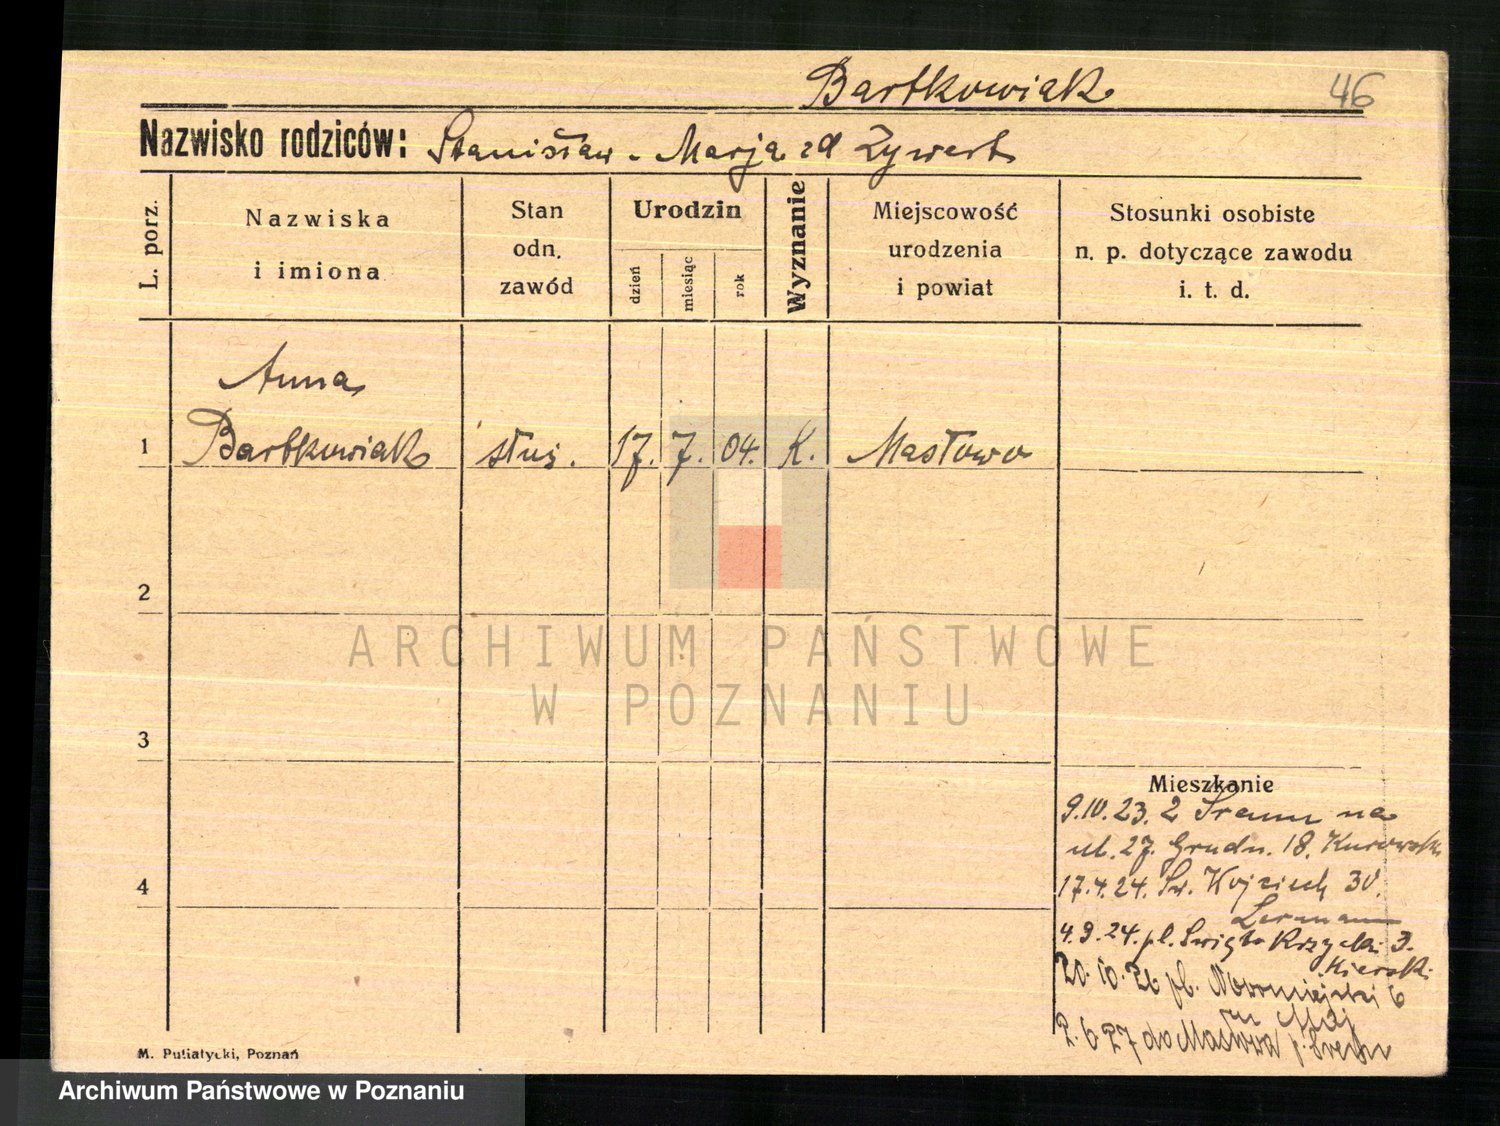 Bartkowiak 46
Nazwisko rodziców: Stanisław - Marja zd Zywert
L. porz.
Nazwiska
i imiona
Stan
odn.
zawód
Urodzin
dzień
miesiąc
rok
Wyznanie
Miejscowość
urodzenia
i powiat
Stosunki osobiste
n. p. dotyczące zawodu
i. t. d.
Anna
1 Bartkowiak służ. 17. 7. 04. K. Masłowo
2
ARCHIWUM PAŃSTWOWE
W POZNANIU
3
Mieszkanie
9.10.23. z Śremu na
ul. 27. Grudn. 18.
4
17.4.24. Św. Wojciech 30.
4.9.24. pl. Święto Krzyski 3.
20.10.26 pl. Nowomiejski 6
2.6.27 do Masłowa p. Śrem
M. Putiatycki, Poznań
Archiwum Państwowe w Poznaniu